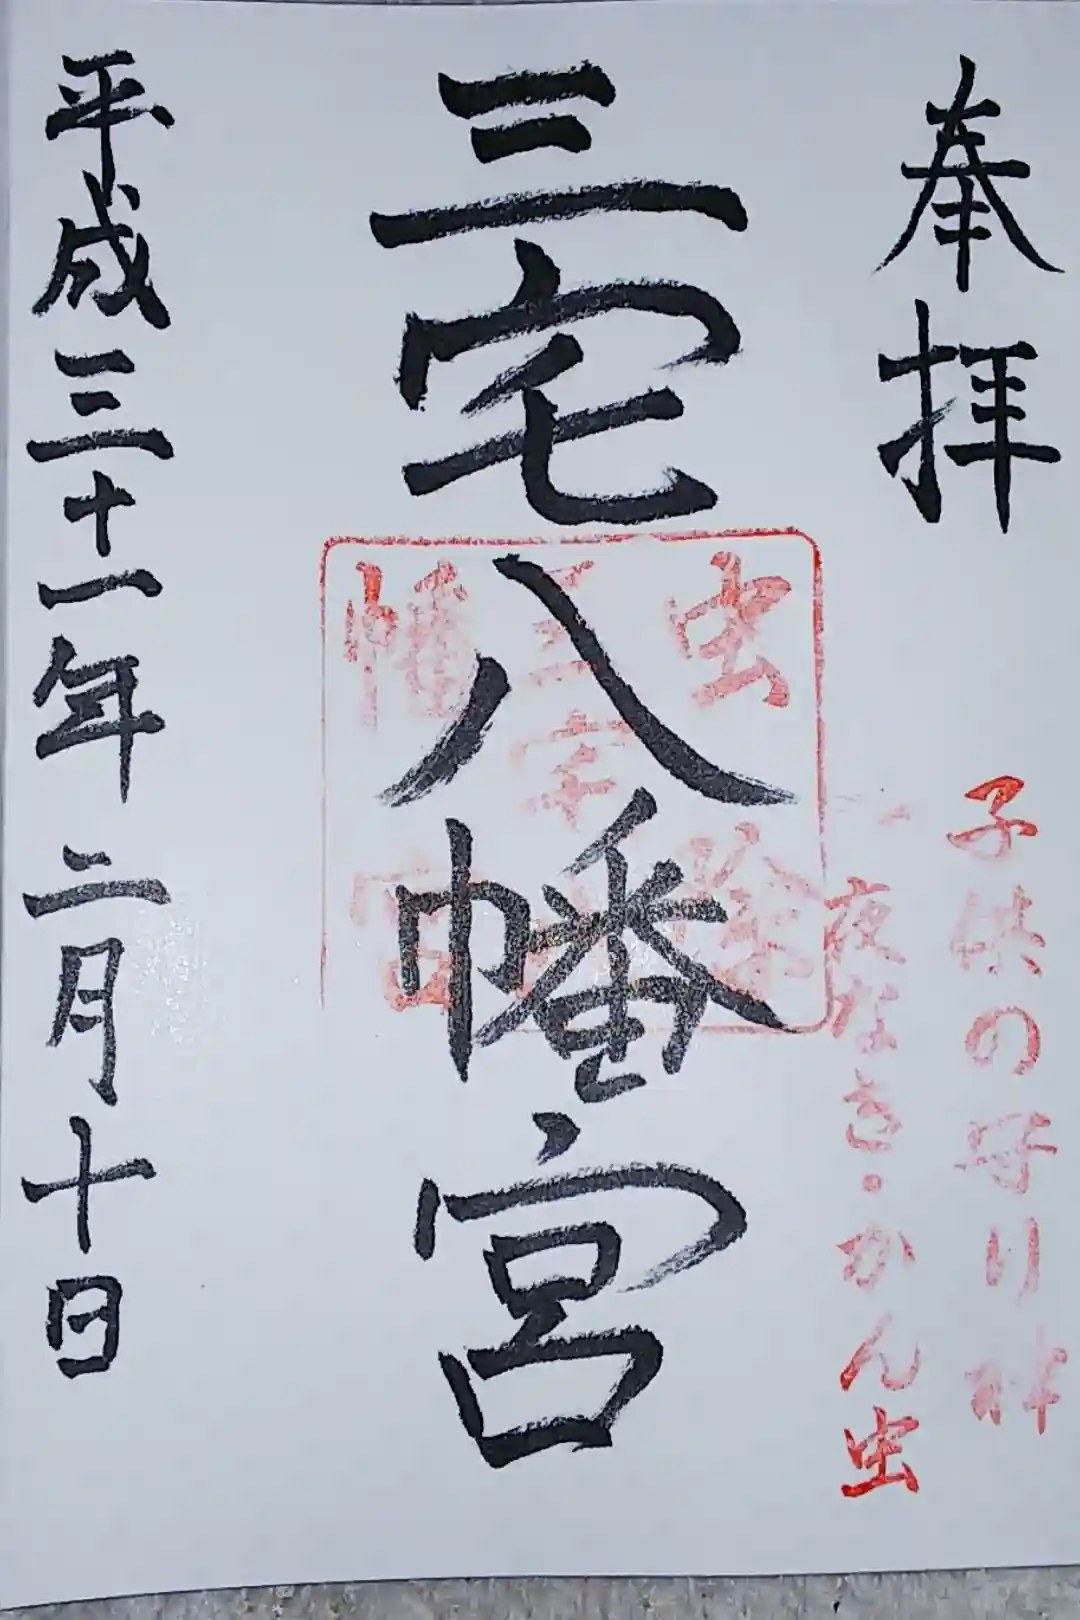 奉拝
子供の守り神
夜なき・かん虫
三宅八幡宮
虫除
三宅八
幡宮
平成三十一年二月十日